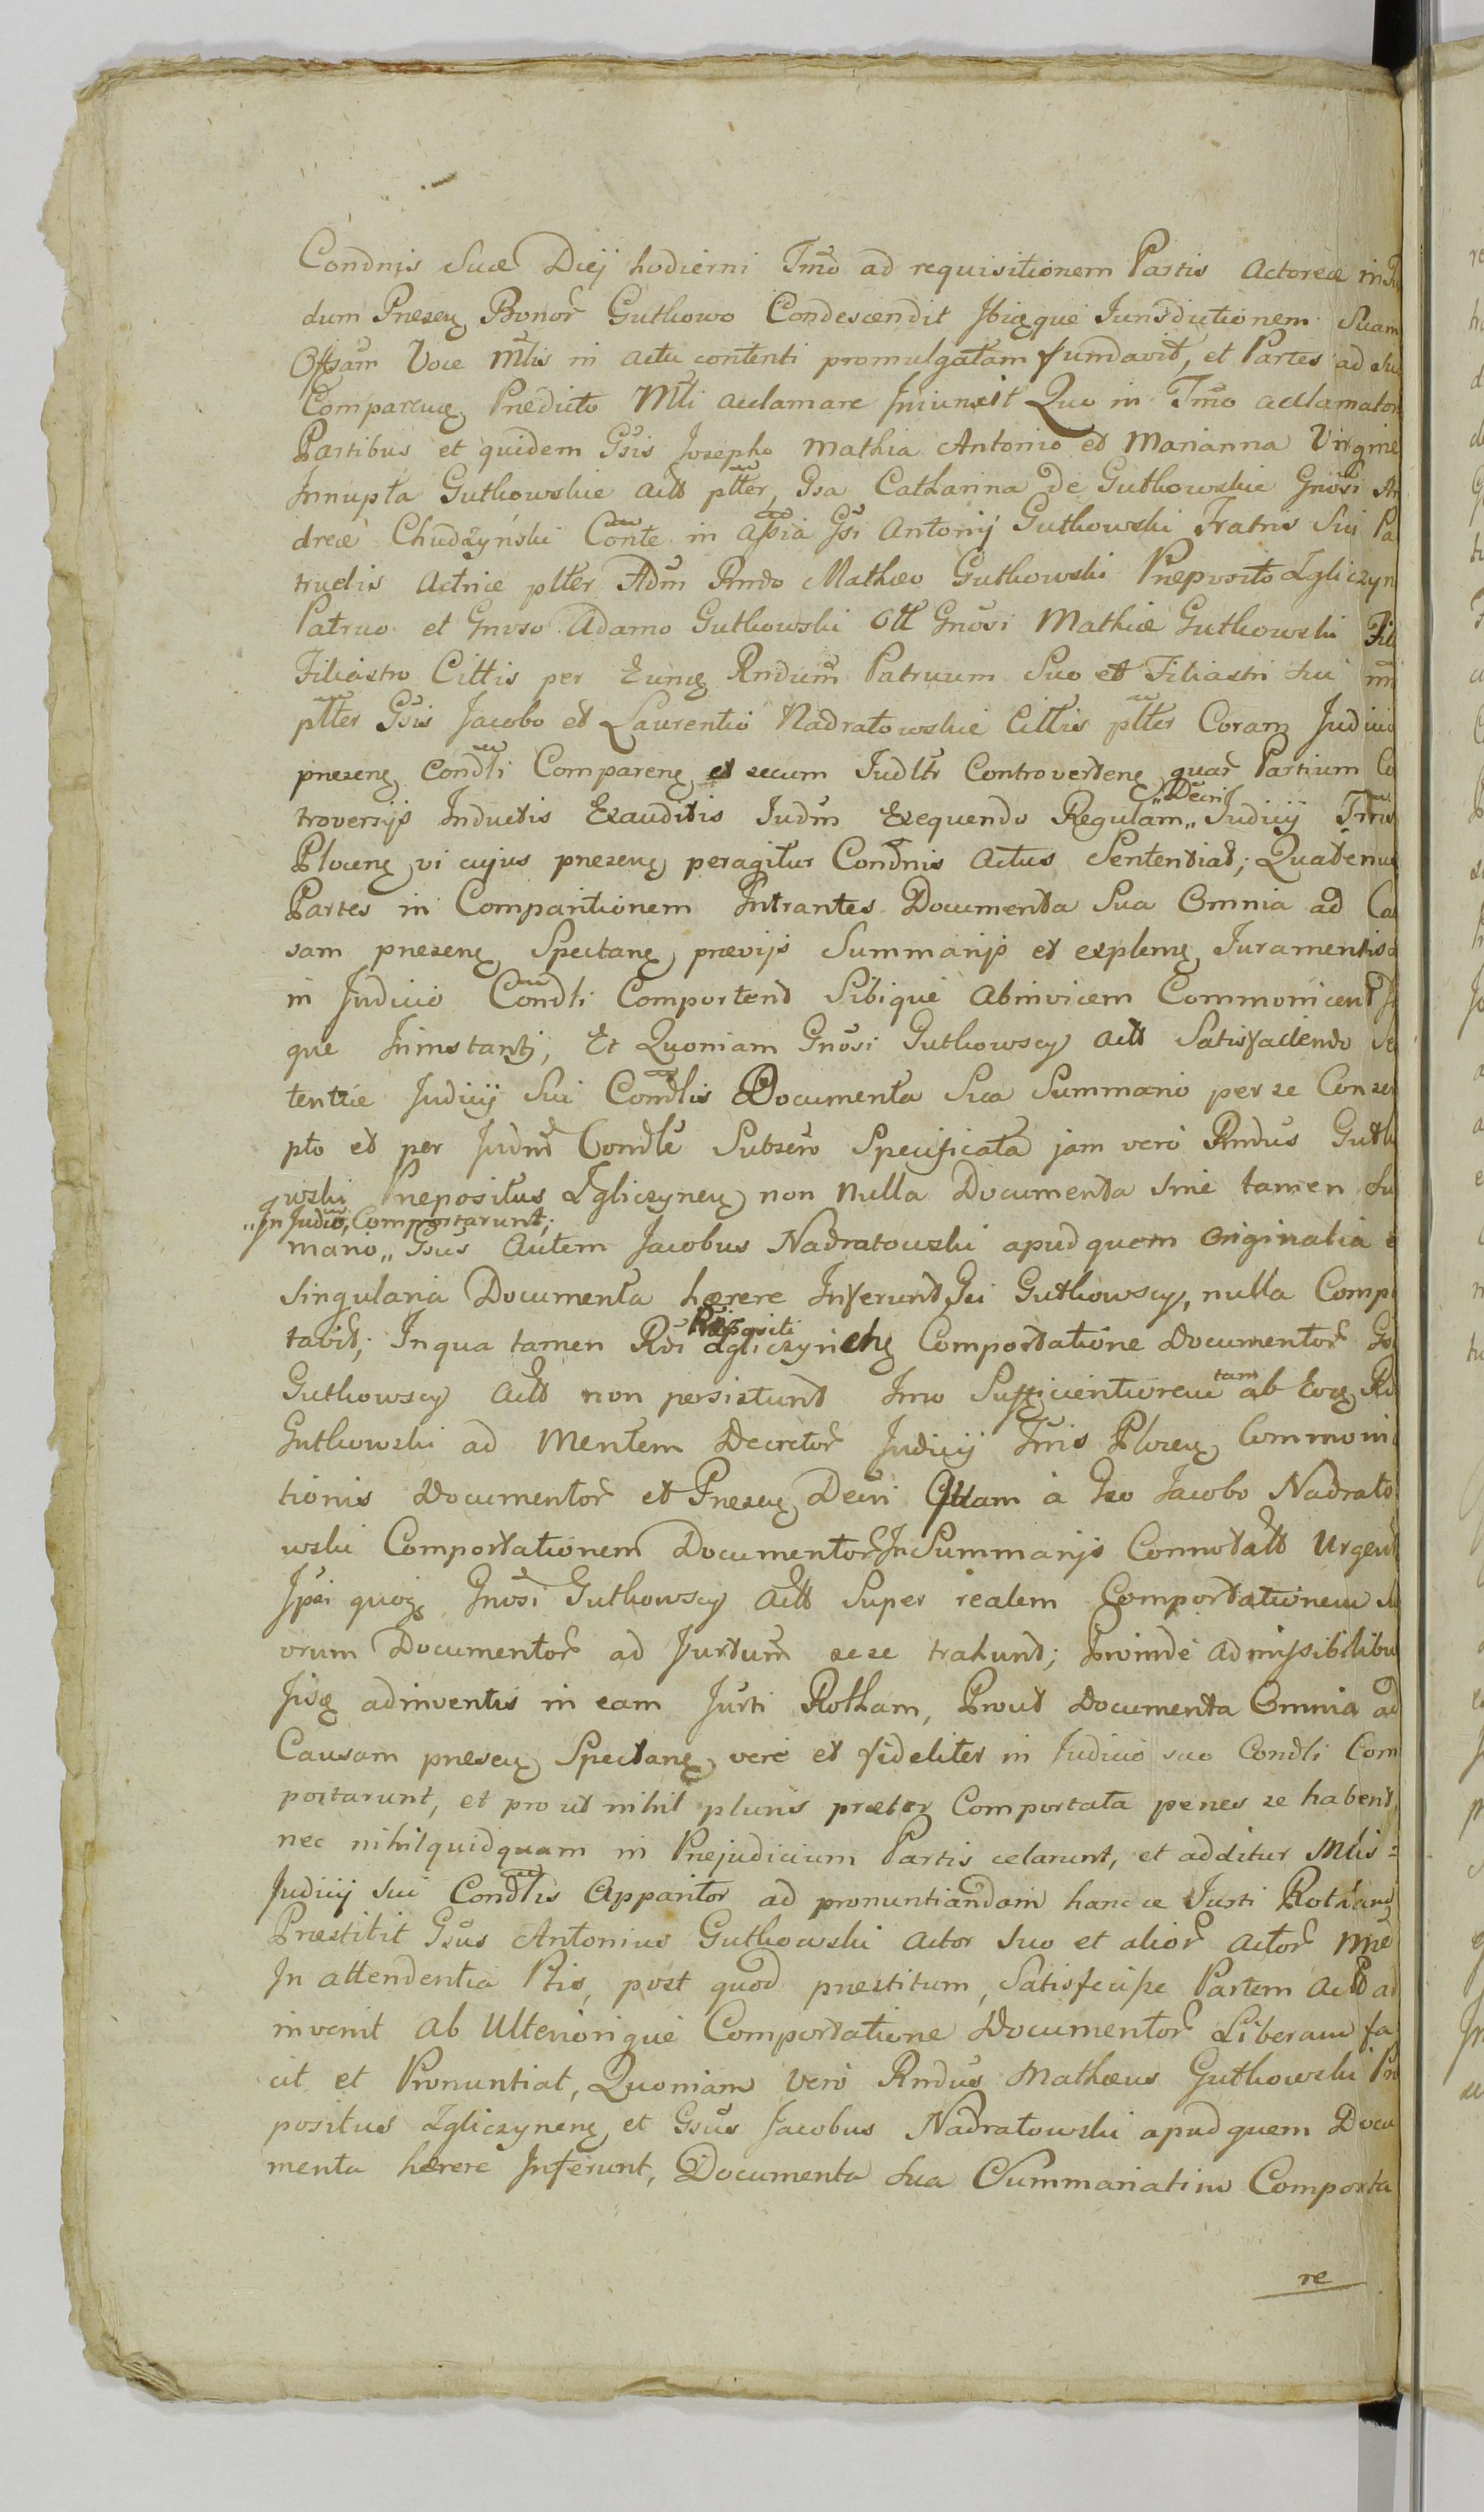 Condnis Suæ Diej hodierni Tmo ad requisitionem Partis Actoreæ in
dum Præsen Bonor Gutkowo Condescendit Ibiqque Iurisdictionem Suam
Offsam Voce Mtlis in actu contenti promulgatam fundavit, et Partes ad
Comparen Prædicto Mtli acclamare Iniunxit Quo in Tmo acclamator
Partibus et quidem Gsis Josepho Mathia Antonio et Marianna Virgine
Innupta Gutkowskie Actt ptter, Gsa Catharina de Gutkowskie Gnosi An
dreæ Chudzyński Conte in assia Gsi Antonij Gutkowski Fratris Sui Pa
truelis Actrice ptter Adm Rndo Matheo Gutkowski Præposito Zgliczyn
Patruo et Gnoso Adamo Gutkowski Ott Gnosi Mathiæ Gutkowski Fil
Filiastro Cittis per Eunq Rndum Patruum Suo et Filiastri Sui nn
ptter Gsis Jacobo et Laurentio Nadratowskie Cittis ptter Coram Judicio
præsen Condli Comparen et secum Iudltr Controverten quar Partium Co
troversijs Inductis Exauditis Iudm Exequendo Regulam „Decri Iudicij Trnis
Plocen vi cujus præsen peragitur Condnis Actus Sententiat; Quatenus
Partes in Comparitionem Intrantes Documenta Sua Omnia ad Ca
sam præsen Spectan prævijs Summarijs et explen Iuramentis
in Judicio Condli Comportent Sibique abinvicem Commonicent
que Ininstanti, Et Quoniam Gnosi Gutkowscy Actt Satisfaciendo Se
tentiæ Judicij Sui Condlis Documenta Sua Summario per se Conscr
pto et per Judm Condle Subsero Specificata jam vero Rndus Gutk
owski Præpositus Zgliczynen non nulla Documenta sine tamen Su
„In Judio, Comportarunt;
mario„ Gsus Autem Jacobus Nadratowski apud quem Originalia
Singularia Documenta hærere Inferunt Gsi Gutkowscy, nulla Comp
tabit; In qua tamen Rdi Præpositi Zgliczynen Comportatione Documentor Gsi
Gutkowscy Actt non persistunt Imo Sufficientiorem tam ab Eoq Rd
Gutkowski ad Mentem Decretor Judicij Trnis Plocen Commoni
tionis Documentor et Præsen Decri Quam à Gso Jacobo Nadrato
wski Comportationem Documentor In Summarijs Connotatt Urgent
Ipsi quoq Gnosi Gutkowscy Actt Super realem Comportationem Su
orum Documentor ad Jurtum sese trahunt; Proinde Admissibilibu
Jisq adinventis in eam Jurti Rotham, Prout Documenta Omnia ad
Causam præsen Spectan verè et fideliter in Iudicio suo Condli Com
portarunt, et pro ut nihil pluris præter Comportata penes se habent,
nec nihilquidquam in Præjudicium Partis celarunt, et additur Mtlis =
Judicij Sui Condlis Apparitor ad pronuntiandam hancce Iurti Rotham
Præstitit Gsus Antonius Gutkowski Actor Suo et alior Actor nne
In attendentia Ptis, post quod præstitum, Satisfecisse Partem Actt ad
invenit ab Ulteriorique Comportatione Documentor Liberam fa
cit et Pronuntiat, Quoniam Vero Rndus Matheus Gutkowski Præ
positus Zgliczynen et Gsus Jacobus Nadratowski apud quem Docu
menta hærere Inferunt, Documenta Sua Summariatim Comporta
re